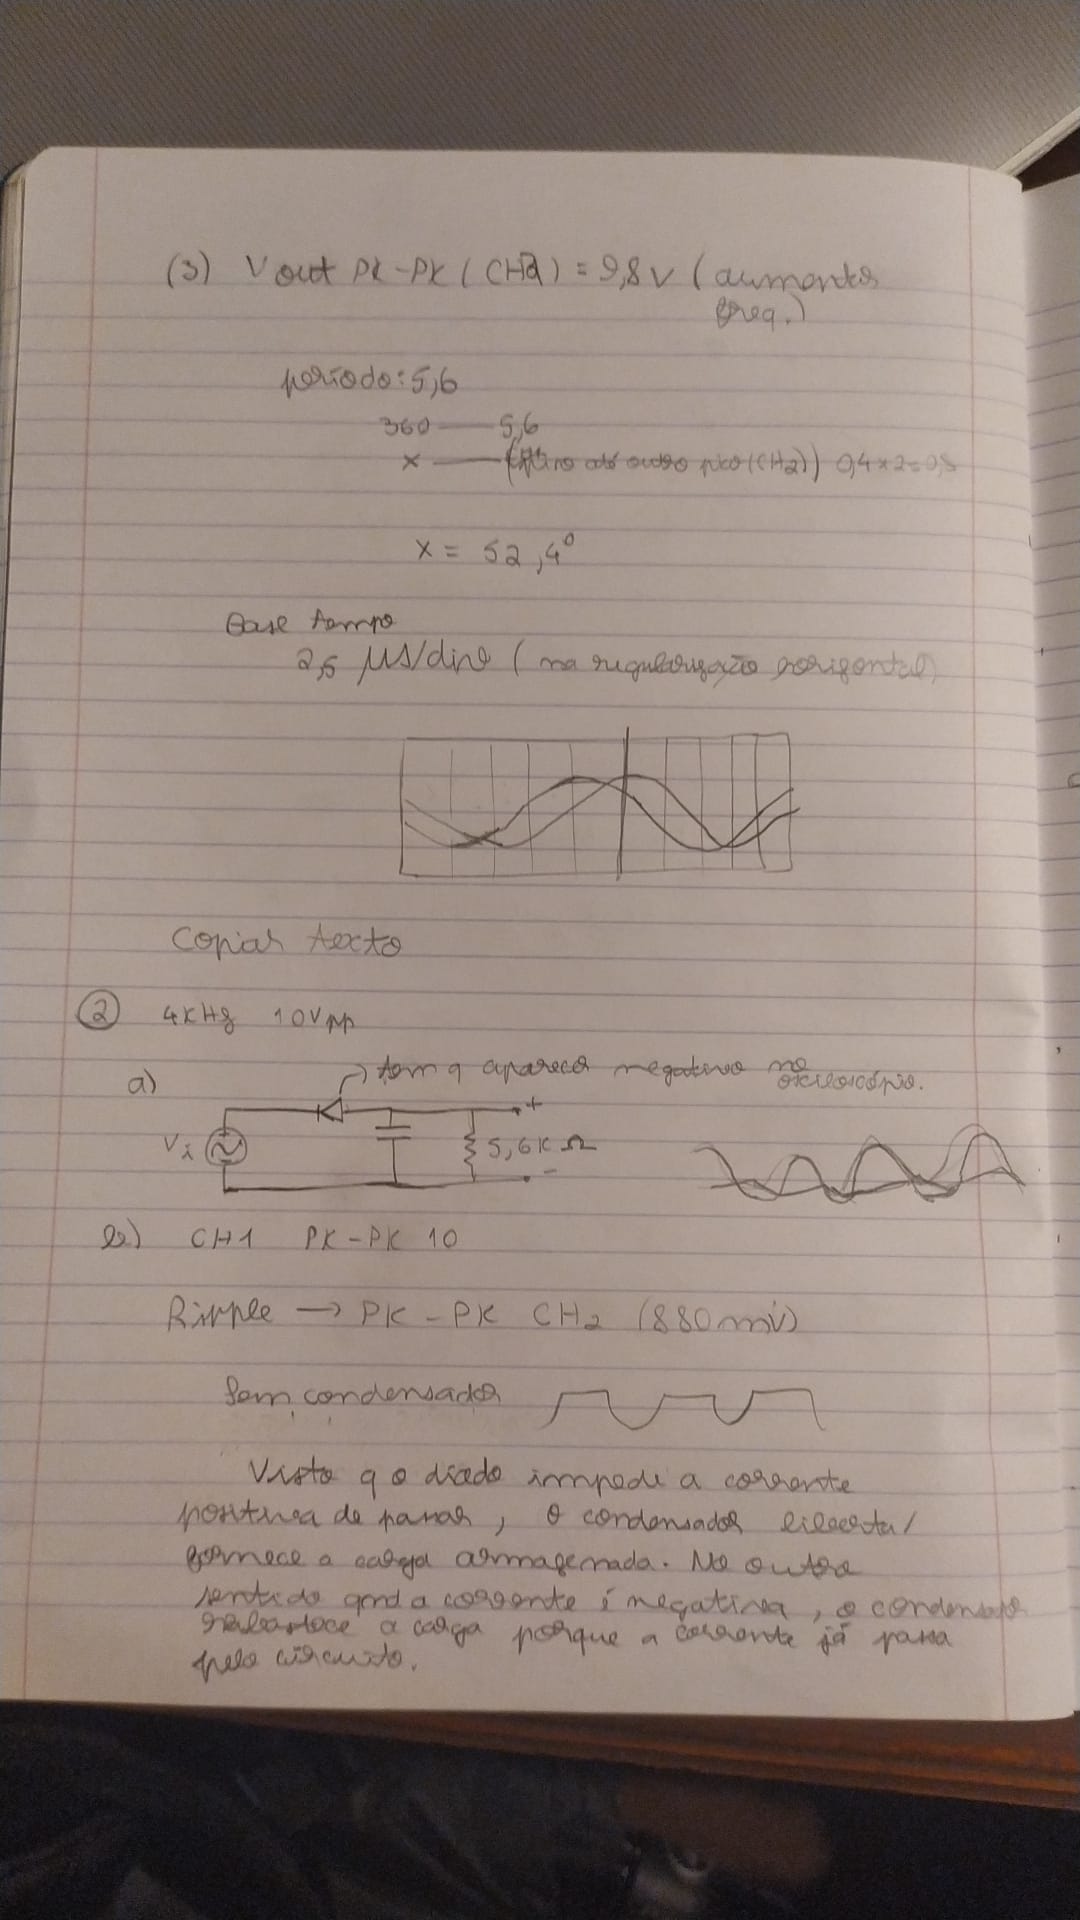 (3) Vout PK-PK (CH2) = 9,8V (aumentar
freq.)
período: 5,6
360 — 5,6
x — até outro pico (CH2)) 0,4x2=0,8
x = 52,4°
Base tempo
2,5 µs/div (na regularização horizontal)
Copiar texto
2 4KHz 10Vpp
a) tem q aparecer negativo no
osciloscópio.
Vi
+
5,6K Ω
-
b) CH1 PK-PK 10
Ripple → PK-PK CH2 (880mV)
Sem condensador
Visto q o díodo impede a corrente
positiva de passar, o condensador liberta/
fornece a carga armazenada. No outro
sentido qnd a corrente é negativa, o condensador
reabastece a carga porque a corrente já passa
pelo circuito.